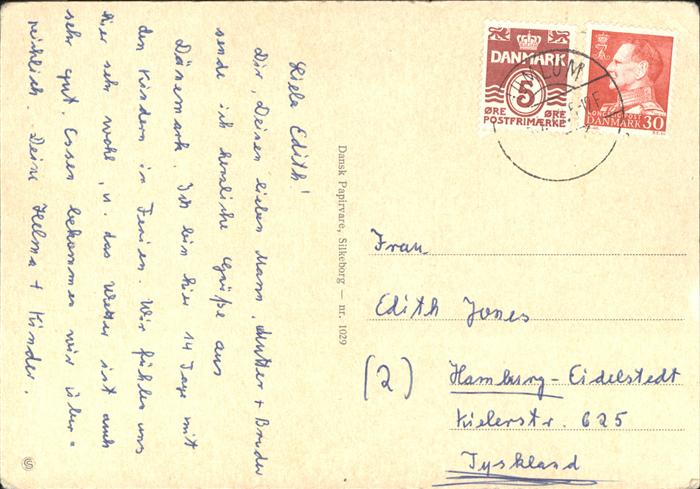 Liebe Edith!
Dir, Deinen lieben Mann, Mutter + Bruder
sende ich herzliche Grüße aus
Dänemark. Ich bin hier 14 Tage mit
den Kindern in Ferien. Wir fühlen uns
hier sehr wohl, u. das Wetter ist auch
sehr gut. Essen bekommen wir über-
reichlich. Deine Helma + Kinder.
Dansk Papirvare, Silkeborg — nr. 1029
DANMARK
5
ØRE ØRE
POSTFRIMÆRKE
DANMARK 30
Frau
Edith Jones
(2) Hamburg-Eidelstedt
Kielerstr. 625
Tyskland